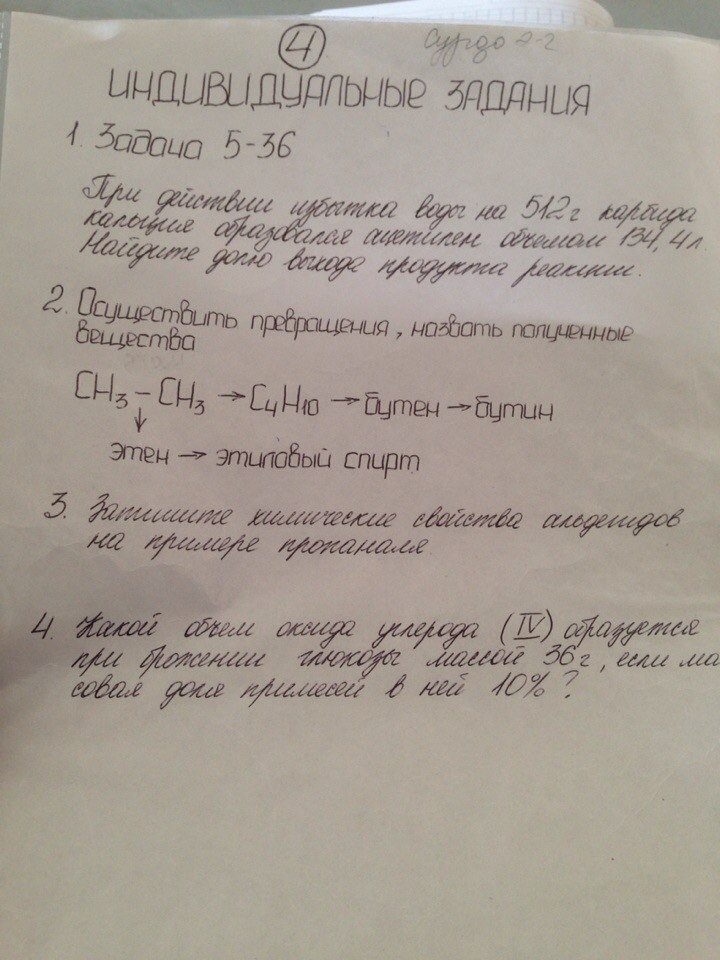 4
Сурдо 2-2
ИНДИВИДУАЛЬНЫЕ ЗАДАНИЯ
1. Задача 5-36
При действии избытка воды на 512 г карбида
кальция образовался ацетилен объемом 134,4 л.
Найдите долю выхода продукта реакции.
2. Осуществить превращения, назвать полученные
вещества
CH3 – CH3 → C4H10 → бутен → бутин
↓
этен → этиловый спирт
3. Запишите химические свойства альдегидов
на примере пропаналя
4. Какой объем оксида углерода (IV) образуется
при брожении глюкозы массой 36 г, если ма
совая доля примесей в ней 10%?